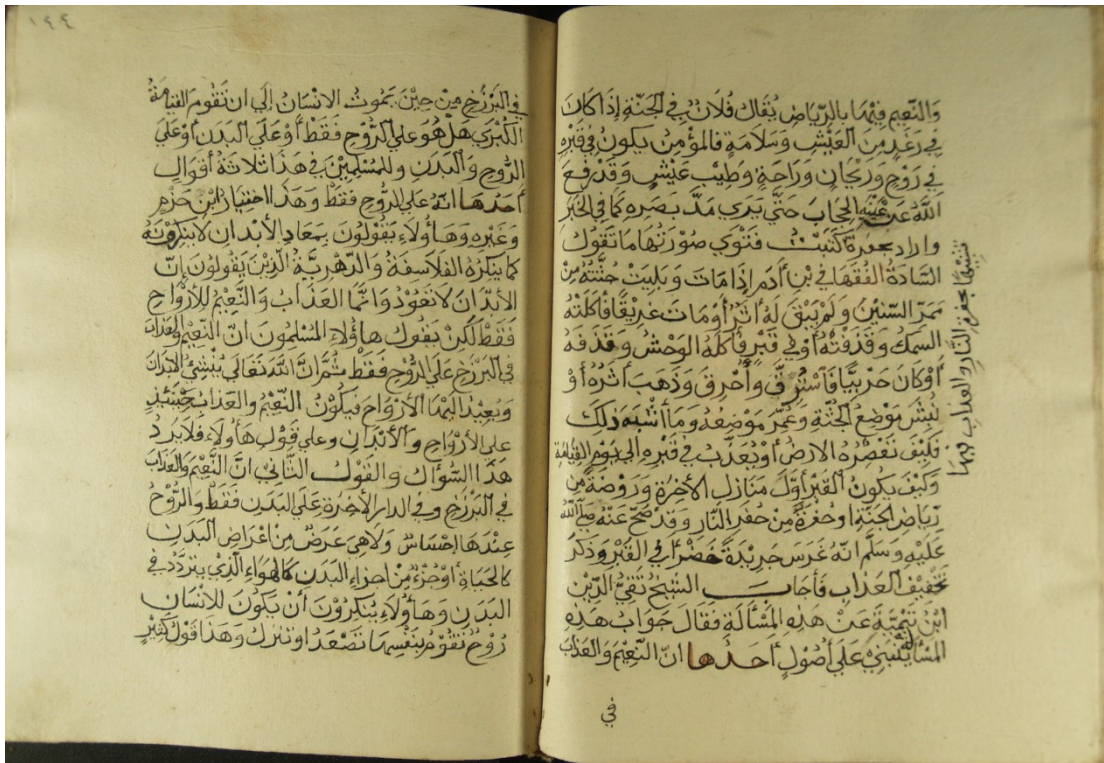 والنعيم فيها بالرياض يقال فلان في الجنة إذا كان
في رغد من العيش وسلامة فالمؤمن يكون في قبره
في روح وريحان وراحة وطيب عيش وقد رفع
الله عن عينيه الحجاب حتى يرى مد بصره كما في الخبر
واراد كتبت فتوى صورتها ما تقول
السادة الفقها في بن أدم إذا مات وبليت جثته من
ممر السنين ولم يبق له أثر أو مات غريقا فأكلته
السمك وقذفته أو في قبر فأكله الوحش وقذفه
أو كان حربيا فأسترق وأحرق وذهب أثره أو
نبش موضع الجثة وعمر موضعه وما أشبه ذلك
فكيف تعصره الارض أو يعذب في قبره إلى يوم القيامة
وكيف يكون القبر أول منازل الأخرة وروضة من
رياض الجنة او حفرة من حفر النار وقد صح عنه صلى الله
عليه وسلم انه غرس جريدة خضرا في القبر وذكر
تخفيف العذاب فأجاب الشيخ تقي الدين
ابن تيمية عن هذه المسألة فقال جواب هذه
المسألة تنبني على أصول أحدها ان النعيم والعذاب
في
تشبيها بحفر النار والعذاب فيها
١٤٤
في البرزخ من حين يموت الانسان إلى ان تقوم القيامة
الكبرى هل هو على الروح فقط أو على البدن أو على
الروح والبدن وللمسلمين في هذا ثلاثة أقوال
أحدها انه على الروح فقط وهذا اختيار ابن حزم
وغيره وهاؤلاء يقولون بمعاد الأبدان لا ينكرونه
كما ينكره الفلاسفة والدهرية الذين يقولون إن
الأبدان لا تعود وانما العذاب والنعيم للأرواح
فقط لكن يقول هاؤلاء المسلمون ان النعيم والعذاب
في البرزخ على الروح فقط ثم ان الله تعالى ينشئ الابدان
ويعيد اليها الأرواح فيكون النعيم والعذاب حينئذ
على الأرواح والأبدان وعلى قول هاؤلاء فلا يرد
هذا السؤال والقول الثاني ان النعيم والعذاب
في البرزخ وفي الدار الأخرة على البدن فقط والروح
عندها احساس ولا هي عرض من اعراض البدن
كالحياة أو جزء من اجزاء البدن كالهواء الذي يتردد في
البدن وهاؤلاء ينكرون أن يكون للانسان
روح تقوم بنفسها تصعد او تنزل وهذا قول كثير